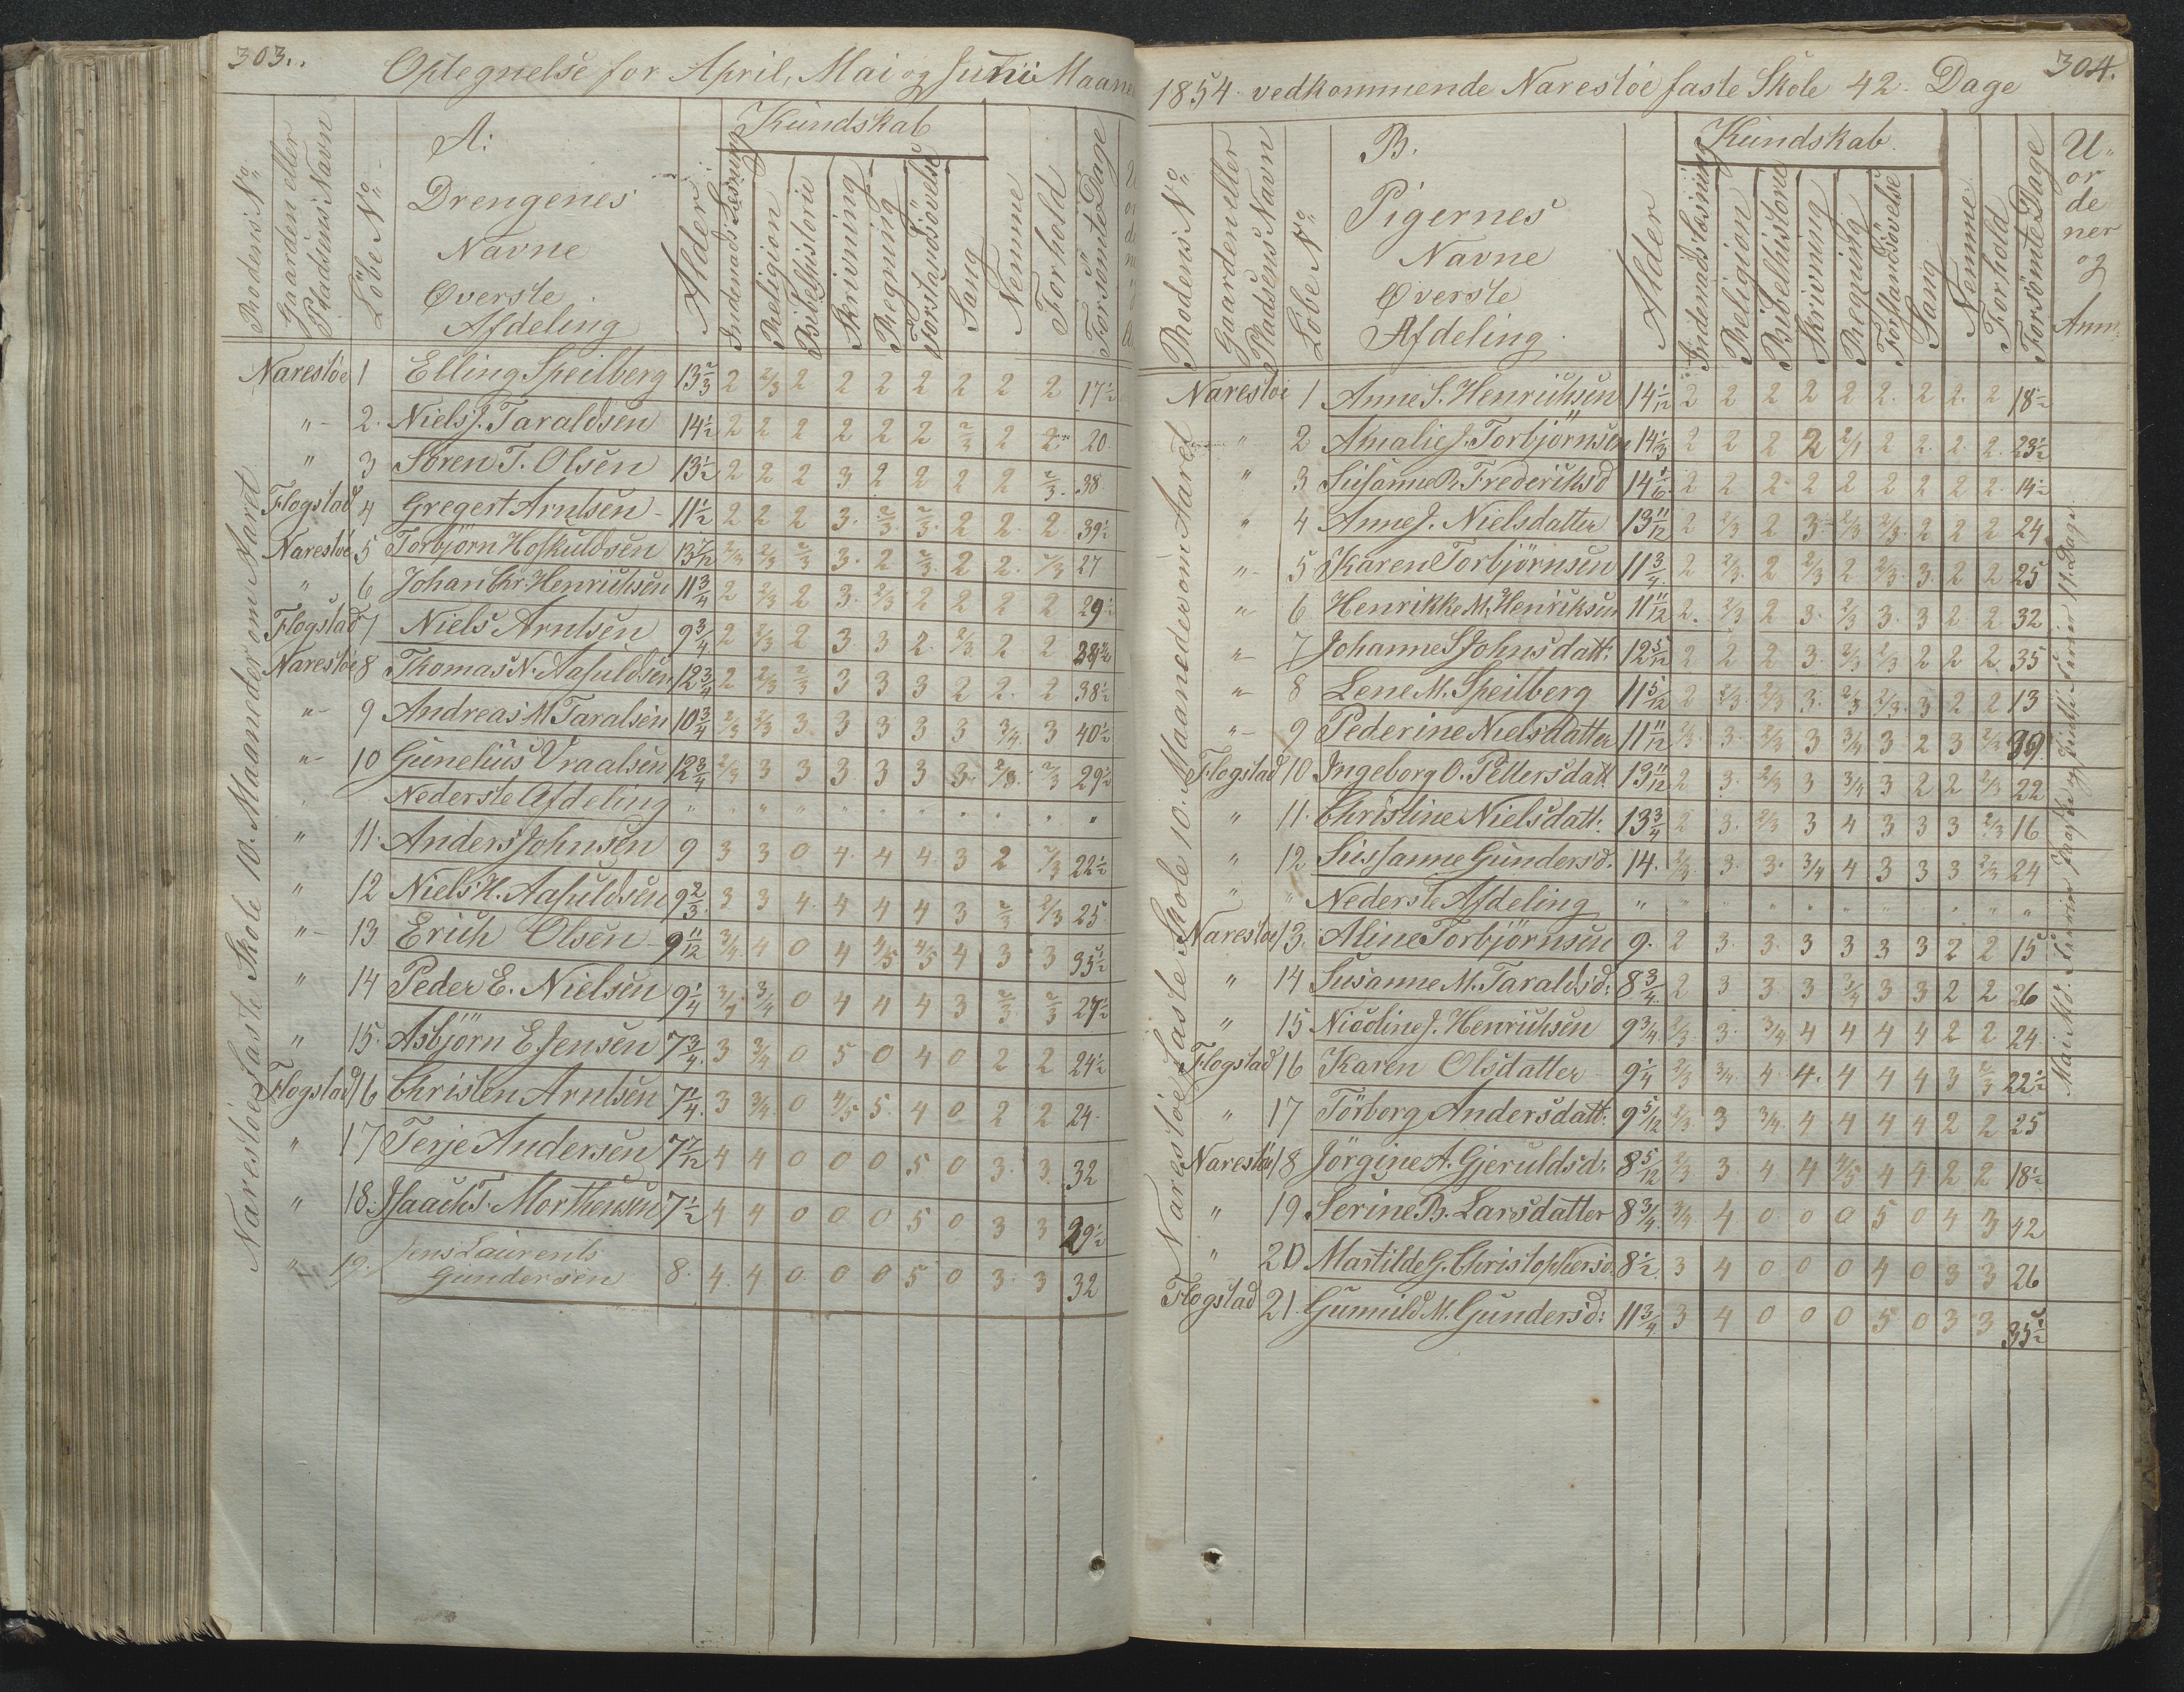 303.
Optegnelse for April, Mai og Junii Maane
Rodens No
Gaarden eller Pladsens Navn
Löbe No
A:
Drengenes
Navne
Øverste
Afdeling
Alder
Kundskab
Indenads Læsning
Religion
Bibelhistorie
Skrivning
Regning
Forstandsövelse
Sang
Nemme
Forhold
Forsömte Dage
Narestöe faste Skole 10. Maaneder om Aaret
Narestöe 1 Elling Speilberg 13 2/3 2 2/3 2 2 2 2 2 2 2 17 1/2
" 2. Niels J. Taraldsen 14 1/2 2 2 2 2 2 2 2/3 2 2 20
" 3 Sören T. Olsen 13 1/2 2 2 2 3 2 2 2 2 2/3 38
Flogstad 4 Gregert Arntsen 11 1/2 2 2 2 3. 2/3 2/3 2 2 2 39 1/2
Narestöe 5 Torbjörn Hoskuldsen 13 7/12 2/3 2/3 2/3 3. 2 2/3 2 2. 2/3 27
" 6 Johan Chr. Henrichsen 11 3/4 2 2/3 2 3. 2/3 2 2 2 2 29 1/2
Flogstad 7 Niels Arntsen 9 3/4 2 2/3 2 3 3 2 2/3 2 2
Narestöe 8 Thomas N. Aasuldsen 12 3/4 2 2/3 2/3 3 3 3 2 2 2 38 1/2
" 9 Andreas M Taralsen 10 3/4 2/3 2/3 3 3 3 3 3 3/4 3 40 1/2
" 10 Gunelius Vraalsen 12 3/4 2/3 3 3 3 3 3 3 2/3 29 1/2
Nederste Afdeling
" 11. Anders Johnsen 9 3 3 0 4 4 4 3 2 2/3 22 1/2
" 12 Niels H. Aasuldsen 9 2/3 3 3 4 4 4 4 3 2/3 2/3 25
" 13 Erich Olsen 9 11/12 3/4 4 0 4 4/5 4/5 4 3 3 35 1/2
" 14 Peder E. Nielsen 9 1/4 3/4 3/4 0 4 4 4 3 2/3 2/3 27 1/2
" 15. Asbjörn E Jensen 7 3/4 3 3/4 0 5 0 4 0 2 2 24 1/2
Flogstad 16 Christen Arntsen 7 1/4 3 3/4 0 4/5 5 4 0 2 2 24
" 17 Terje Andersen 7 7/12 4 4 0 0 0 5 0 3 3 32
" 18. Isaach T. Morthensen 7 1/2 4 4 0 0 0 5 0 3 3 29 1/2
" 19. Jens Laurents
Gundersen 8. 4 4 0 0 0 5 0 3 3 32
304.
1854 vedkommende Narestöe faste Skole 42 Dage
Rodens No
Gaarden eller Pladsens Navn
Löbe No
B.
Pigernes
Navne
Øverste
Afdeling.
Alder
Kundskab.
Indenads læsning
Religion
Bibelhistorie
Skrivning
Regning
Forstandsövelse
Sang
Nemme
Forhold
Forsömte Dage
U-
or
de
ner
og
Anm:
Narestöe faste Skole 10. Maaneder om Aaret
Narestöe 1 Anne S. Henrichsen 14 1/12 2 2 2 2 2 2 2 2 2 18 1/2
" 2 Amalie J. Torbjörnsen 14 1/3 2 2 2 2 2/1 2 2 2 2 23 1/2
" 3 Susanne R. Frederiksd 14 1/6 2 2 2 2 2 2 2 2 2 14 1/2
" 4 Anne J. Nielsdatter 13 11/12 2 2/3 2 3 2/3 2/3 2 2 2 24
" 5 Karen Torbjörnsen 11 3/4 2 2/3 2 2/3 2 2/3 3 2 2 25
" 6 Henrikke M. Henriksen 11 11/12 2. 2/3 2 3 2/3 3 3 2 2 32
" 7 Johanne S Johnsdatt: 12 5/12 2 2 2 3 2/3 2/3 2 2 2 35
" 8 Lene M. Speilberg 11 5/12 2 2/3 2/3 3 2/3 2/3 3 2 2 13
" 9 Pederine Nielsdatter 11 11/12 2/3 3 2/3 3 3/4 3 2 3 2/3 39
Flogstad 10 Ingeborg O. Pettersdatt 13 11/12 2 3 2/3 3 3/4 3 2 2 2/3 22
" 11. Christine Nielsdatt: 13 3/4 2 3. 2/3 3 4 3 3 3 2/3 16
" 12 Sussanne Gundersd. 14. 2/3 3 3 3/4 4 3 3 3 2/3 24
" " Nederste Afdeling
Narestöe 13. Aline Torbjörnsen 9. 2 3 3 3 3 3 3 2 2 15
" 14 Susanne M. Taraldsd: 8 3/4 2 3 3 3 3/4 3 3 2 2 26
" 15 Nicoline J. Henrichsen 9 3/4 2/3 3 3/4 4 4 4 4 2 2 24
Flogstad 16 Karen Olsdatter 9 1/4 2/3 3/4 4 4 4 4 4 3 2/3 22 1/2
" 17 Törborg Andersdatt: 9 5/12 2/3 3 3/4 4 4 4 4 2 2 25
Narestöe 18 Jörgine A. Gjeruldsd: 8 5/12 2/3 3 4 4 4/5 4 4 2 2 18 1/2
" 19 Serine B. Larsdatter 8 3/4 3/4 4 0 0 0 5 0 4 3 42
" 20 Martilde G. Christophersd. 8 1/2 3 4 0 0 0 4 0 3 3 26
Flogstad 21. Gunnild M. Gundersd: 11 3/4 3 4 0 0 0 5 0 3 3 35 1/2